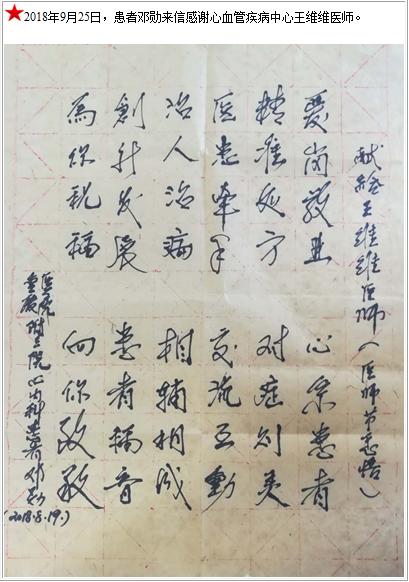 2018年9月25日，患者邓勋来信感谢心血管疾病中心王维维医师。
献给王維維医师（医师节感悟）
爱岗敬业 心系患者
精准处方 对症则灵
医患牵手 交流互動
治人治病 相辅相成
創新发展 患者福音
為你祝福 向你致敬
附二院心内科患者邓勋
(2018.8.19.)